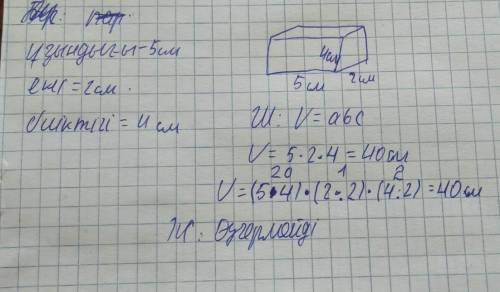 Бер:
ұзындығы - 5см
ені = 2см.
биіктігі = 4 см
4см
5 см
2см
Ш: V = abc
V = 5 · 2 · 4 = 40см
20 1 2
V = (5·4) · (2:2) · (4:2) = 40см
Ж: Өзгермейді